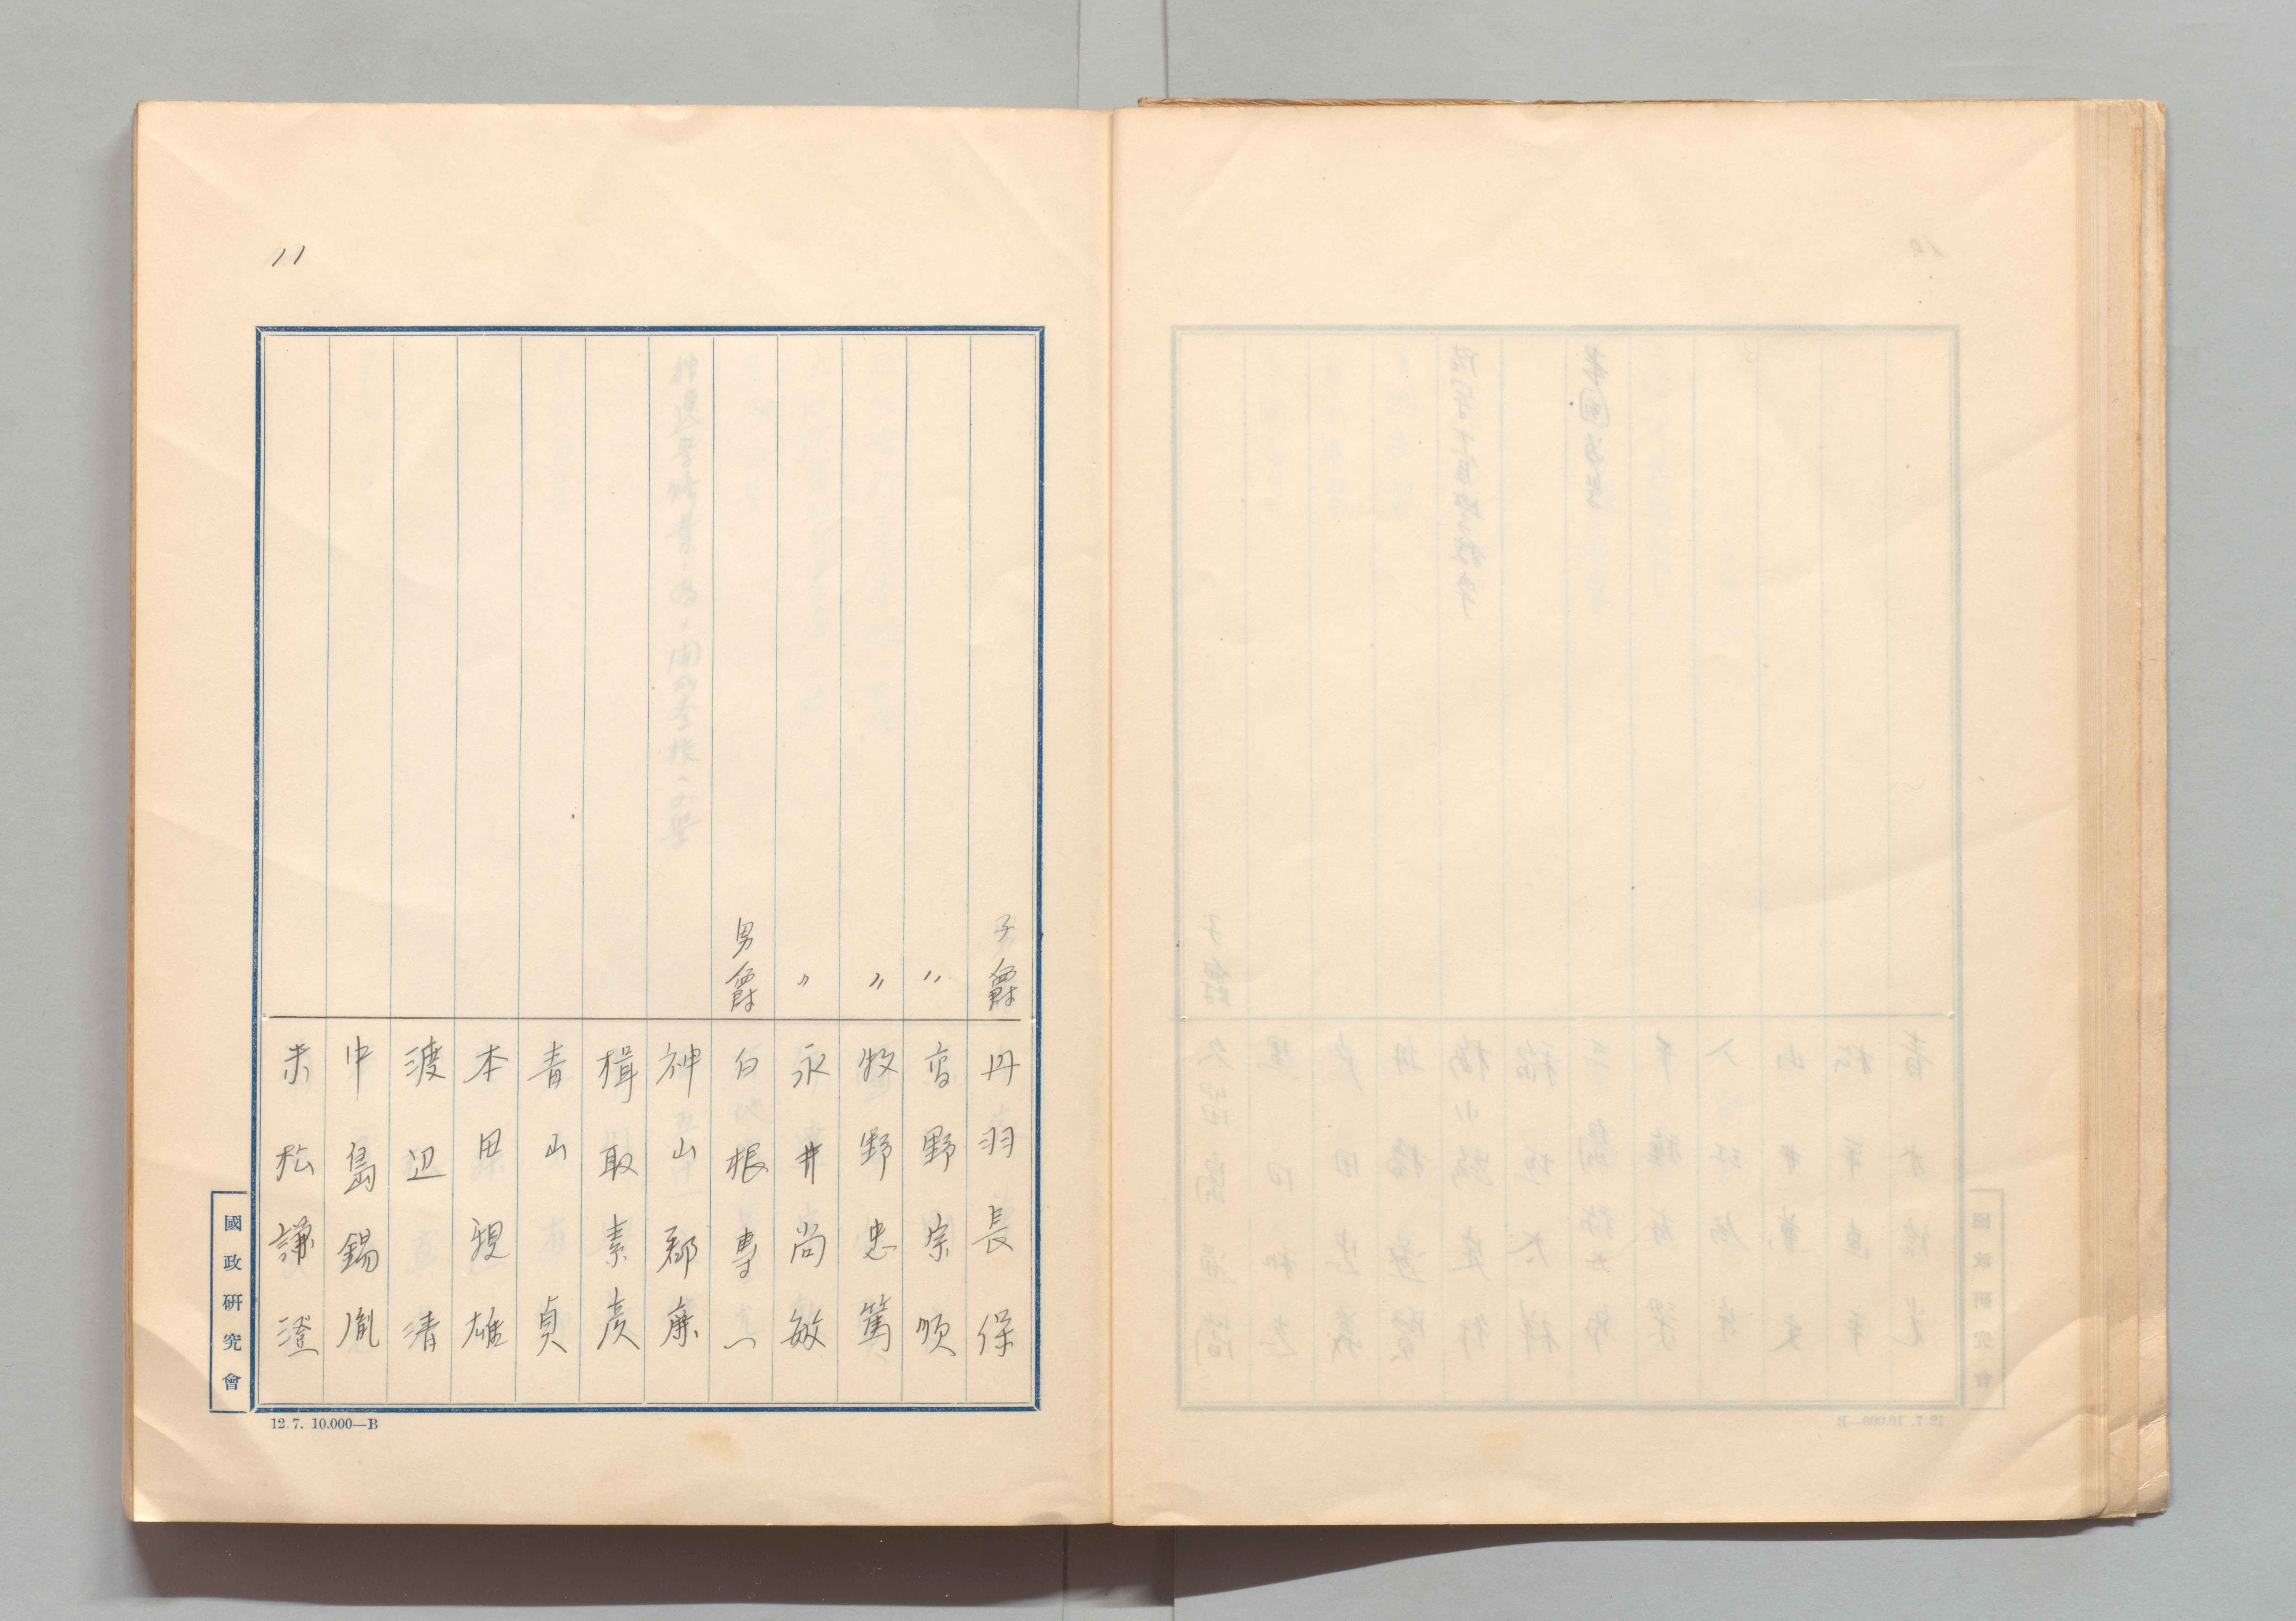 11
子爵 丹羽長保
〃 高野宗順
〃 牧野忠篤
〃 永井尚敏
男爵 白根專一
神山郡廉
楫取素彦
青山貞
本田親雄
渡辺清
中島錫胤
赤松謙澄
國政研究會
12.7. 10.000—B